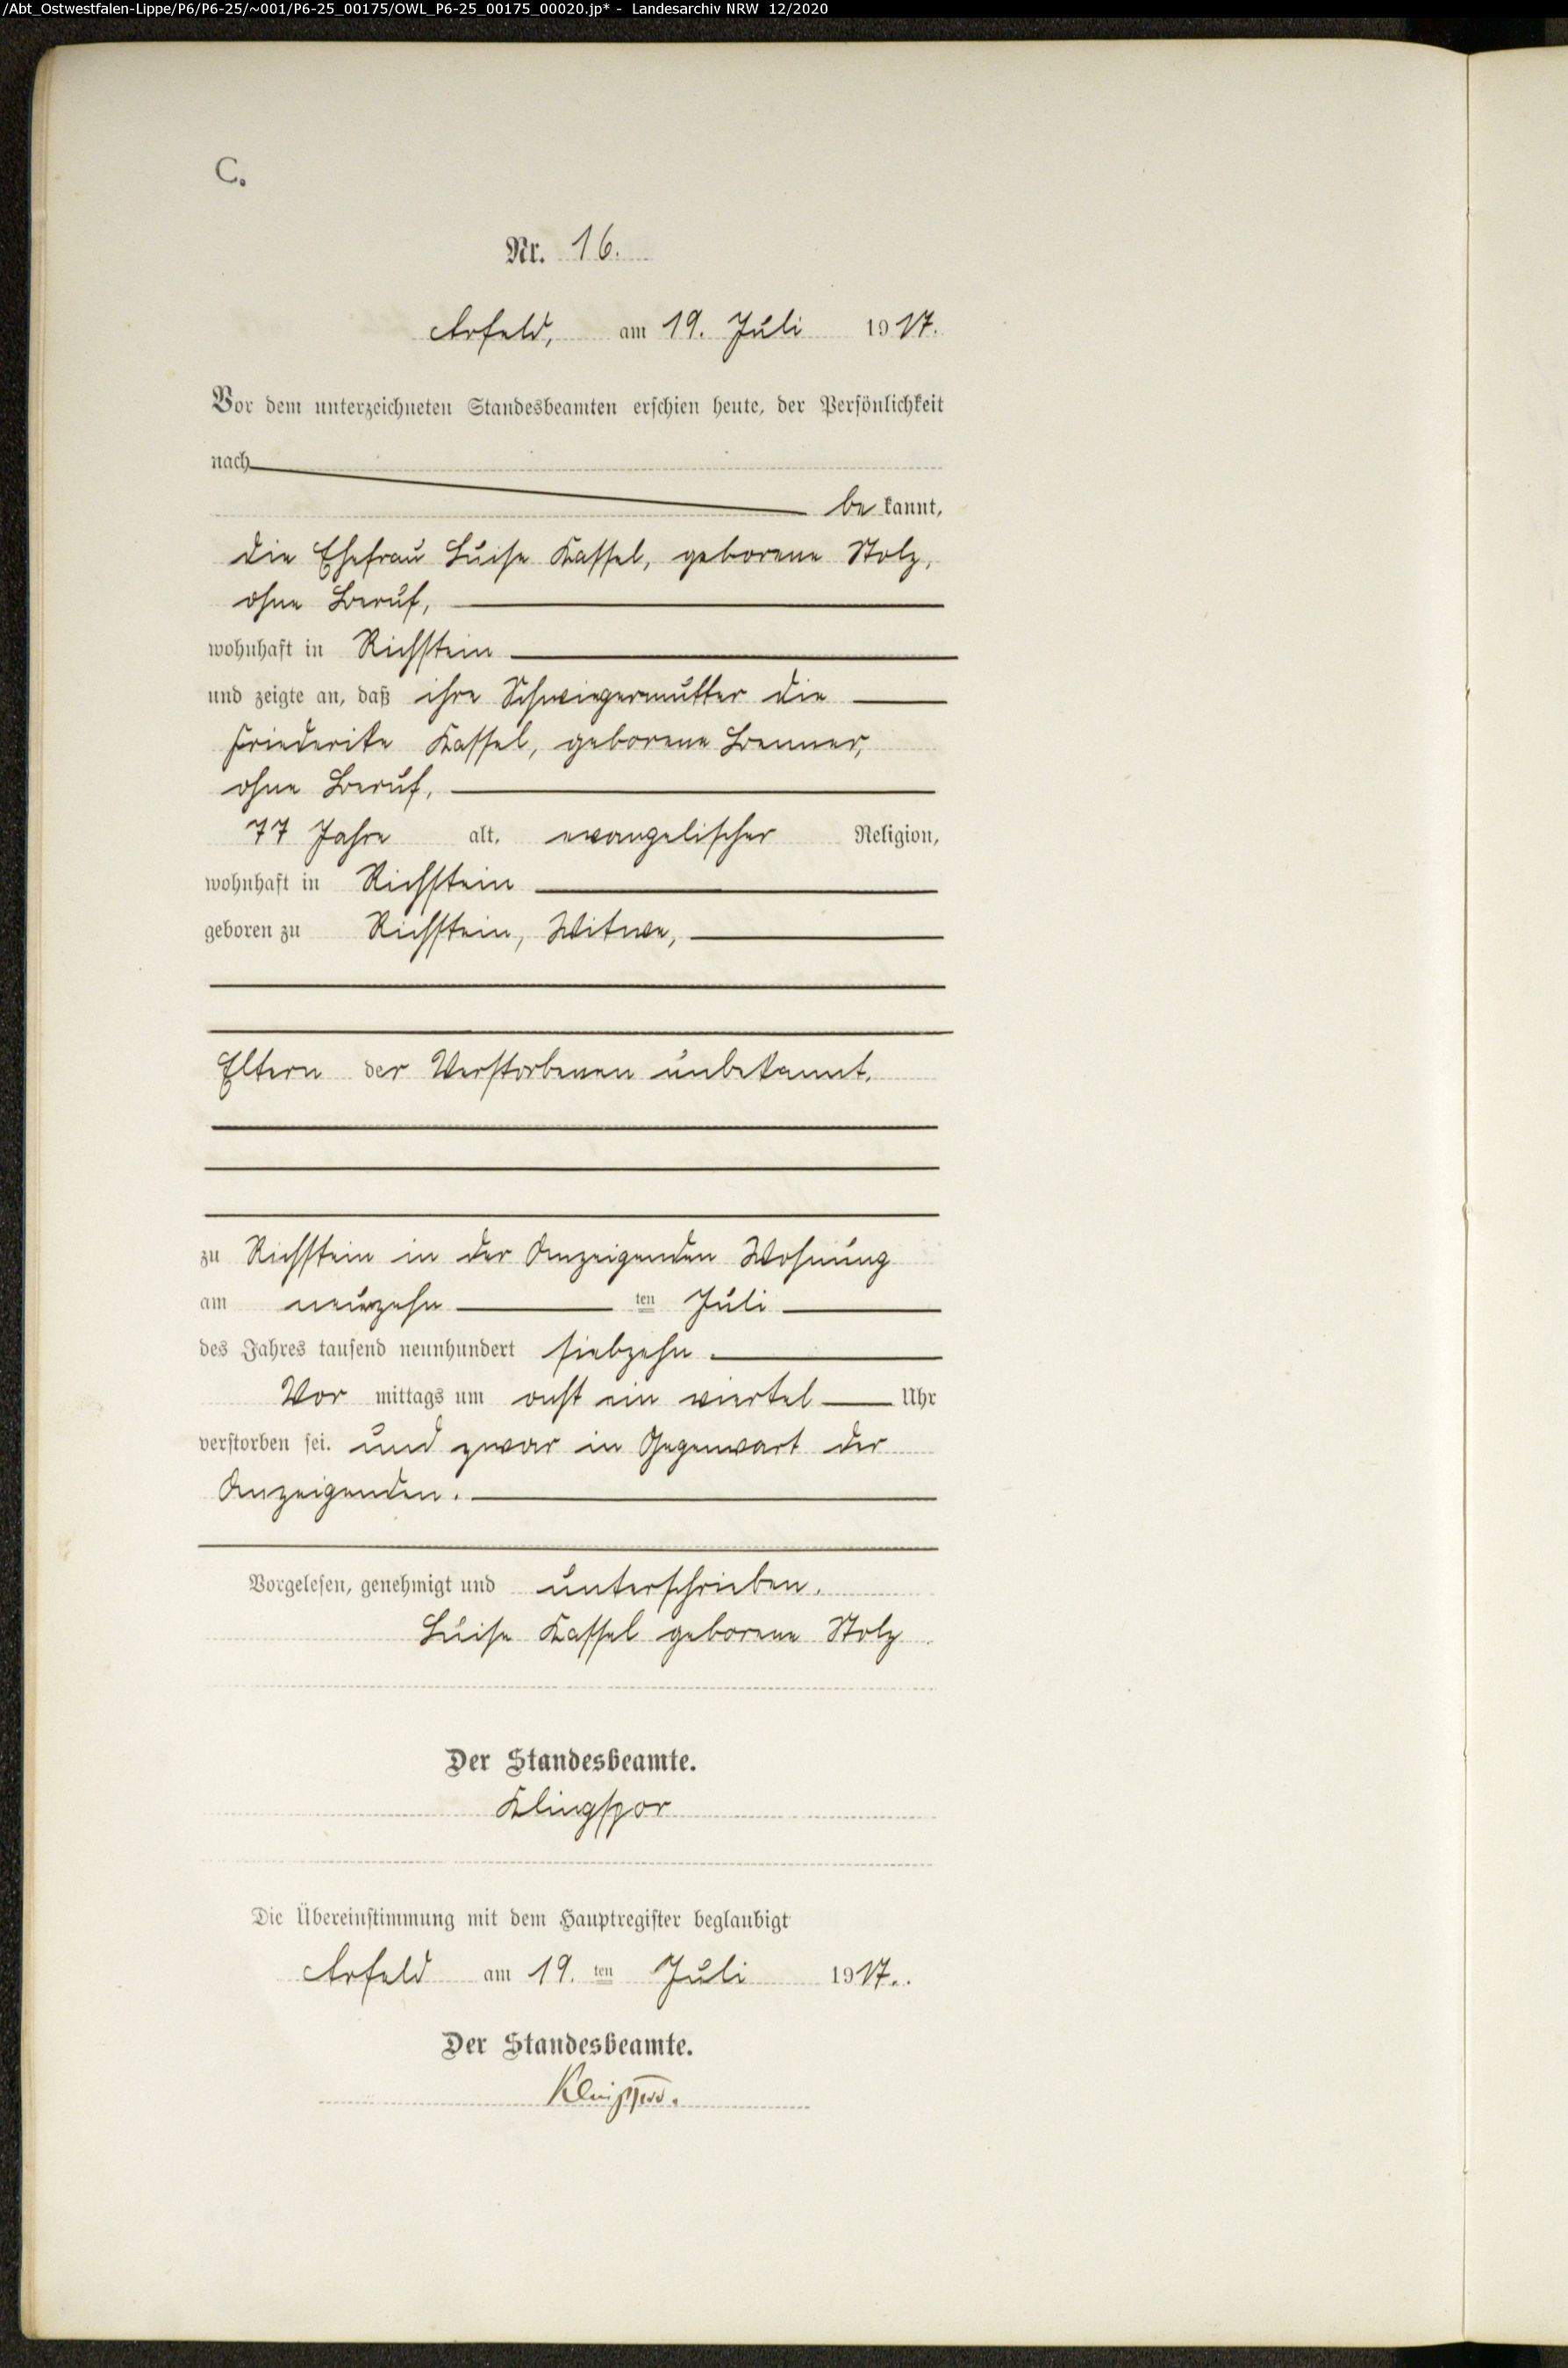 /Abt_Ostwestfalen-Lippe/P6/P6-25/~001/P6-25_00175/OWL_P6-25_00175_00020.jp* - Landesarchiv NRW 12/2020
C.
Nr. 16.
Arfeld, am 19. Juli 1917.
Vor dem unterzeichneten Standesbeamten erschien heute, der Persönlichkeit
nach
be kannt,
die Ehefrau Luise Kassel, geborene Stolz,
ohne Beruf,
wohnhaft in Richstein
und zeigte an, daß ihre Schwiegermutter die
Friederike Kassel, geborene Benner,
ohne Beruf,
77 Jahre alt, evangelischer Religion,
wohnhaft in Richstein
geboren zu Richstein, Witwe,
Eltern der Verstorbenen unbekannt.
zu Richstein in der Anzeigenden Wohnung
am neunzehn ten Juli
des Jahres tausend neunhundert siebzehn
Vor mittags um acht ein viertel Uhr
verstorben sei. und zwar in Gegenwart der
Anzeigenden.
Vorgelesen, genehmigt und unterschrieben.
Luise Kassel geborene Stolz
Der Standesbeamte.
Klingspor
Die Übereinstimmung mit dem Hauptregister beglaubigt
Arfeld am 19. ten Juli 1917..
Der Standesbeamte.
Klingspor.